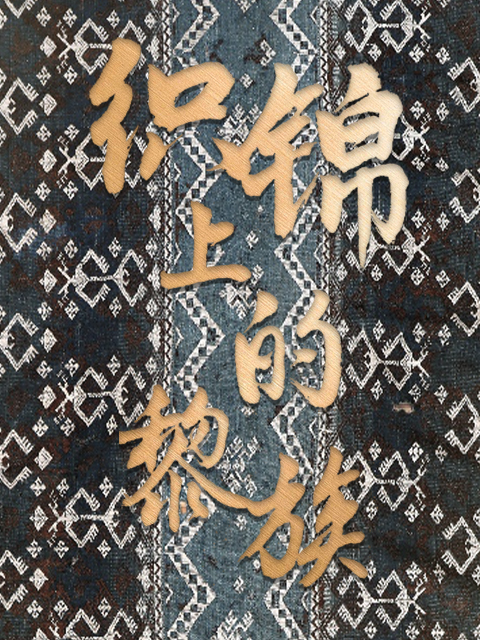 织锦
上的
黎族